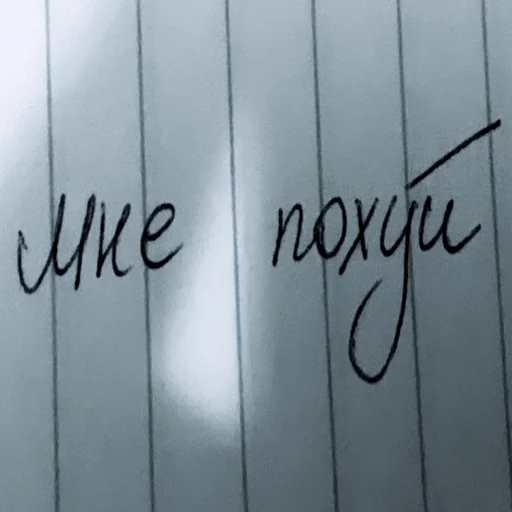 мне похуй